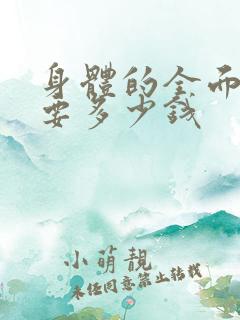 身體的全面
要多少錢
小萌靚
未經同意禁止轉載